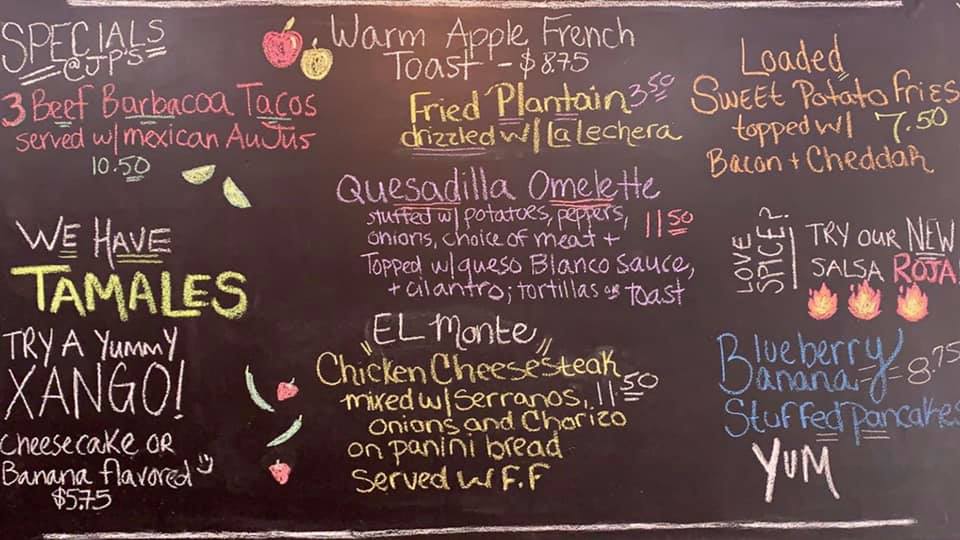 SPECIALS
@JP'S
3 Beef Barbacoa Tacos
served w/mexican AuJus
10.50
WE HAVE
TAMALES
TRY A YUMMY
XANGO!
cheesecake OR
Banana flavored
$5.75
Warm Apple French
Toast - $8.75
Fried Plantain 3.50
drizzled w/ La Lechera
Quesadilla Omelette
stuffed w/ potatoes, peppers, 11 50
onions, choice of meat +
Topped w/queso Blanco Sauce,
+ cilantro; tortillas or toast
"EL Monte"
Chicken Cheesesteak
mixed w/ Serranos, 11 50
onions and Chorizo
on panini bread
Served w/ F.F
Loaded
Sweet Potato Fries
topped w/ 7.50
Bacon + Cheddar
LOVE
SPICE?
TRY our NEW
SALSA ROJA!
Blueberry
Banana 8.75
Stuffed pancakes
YUM